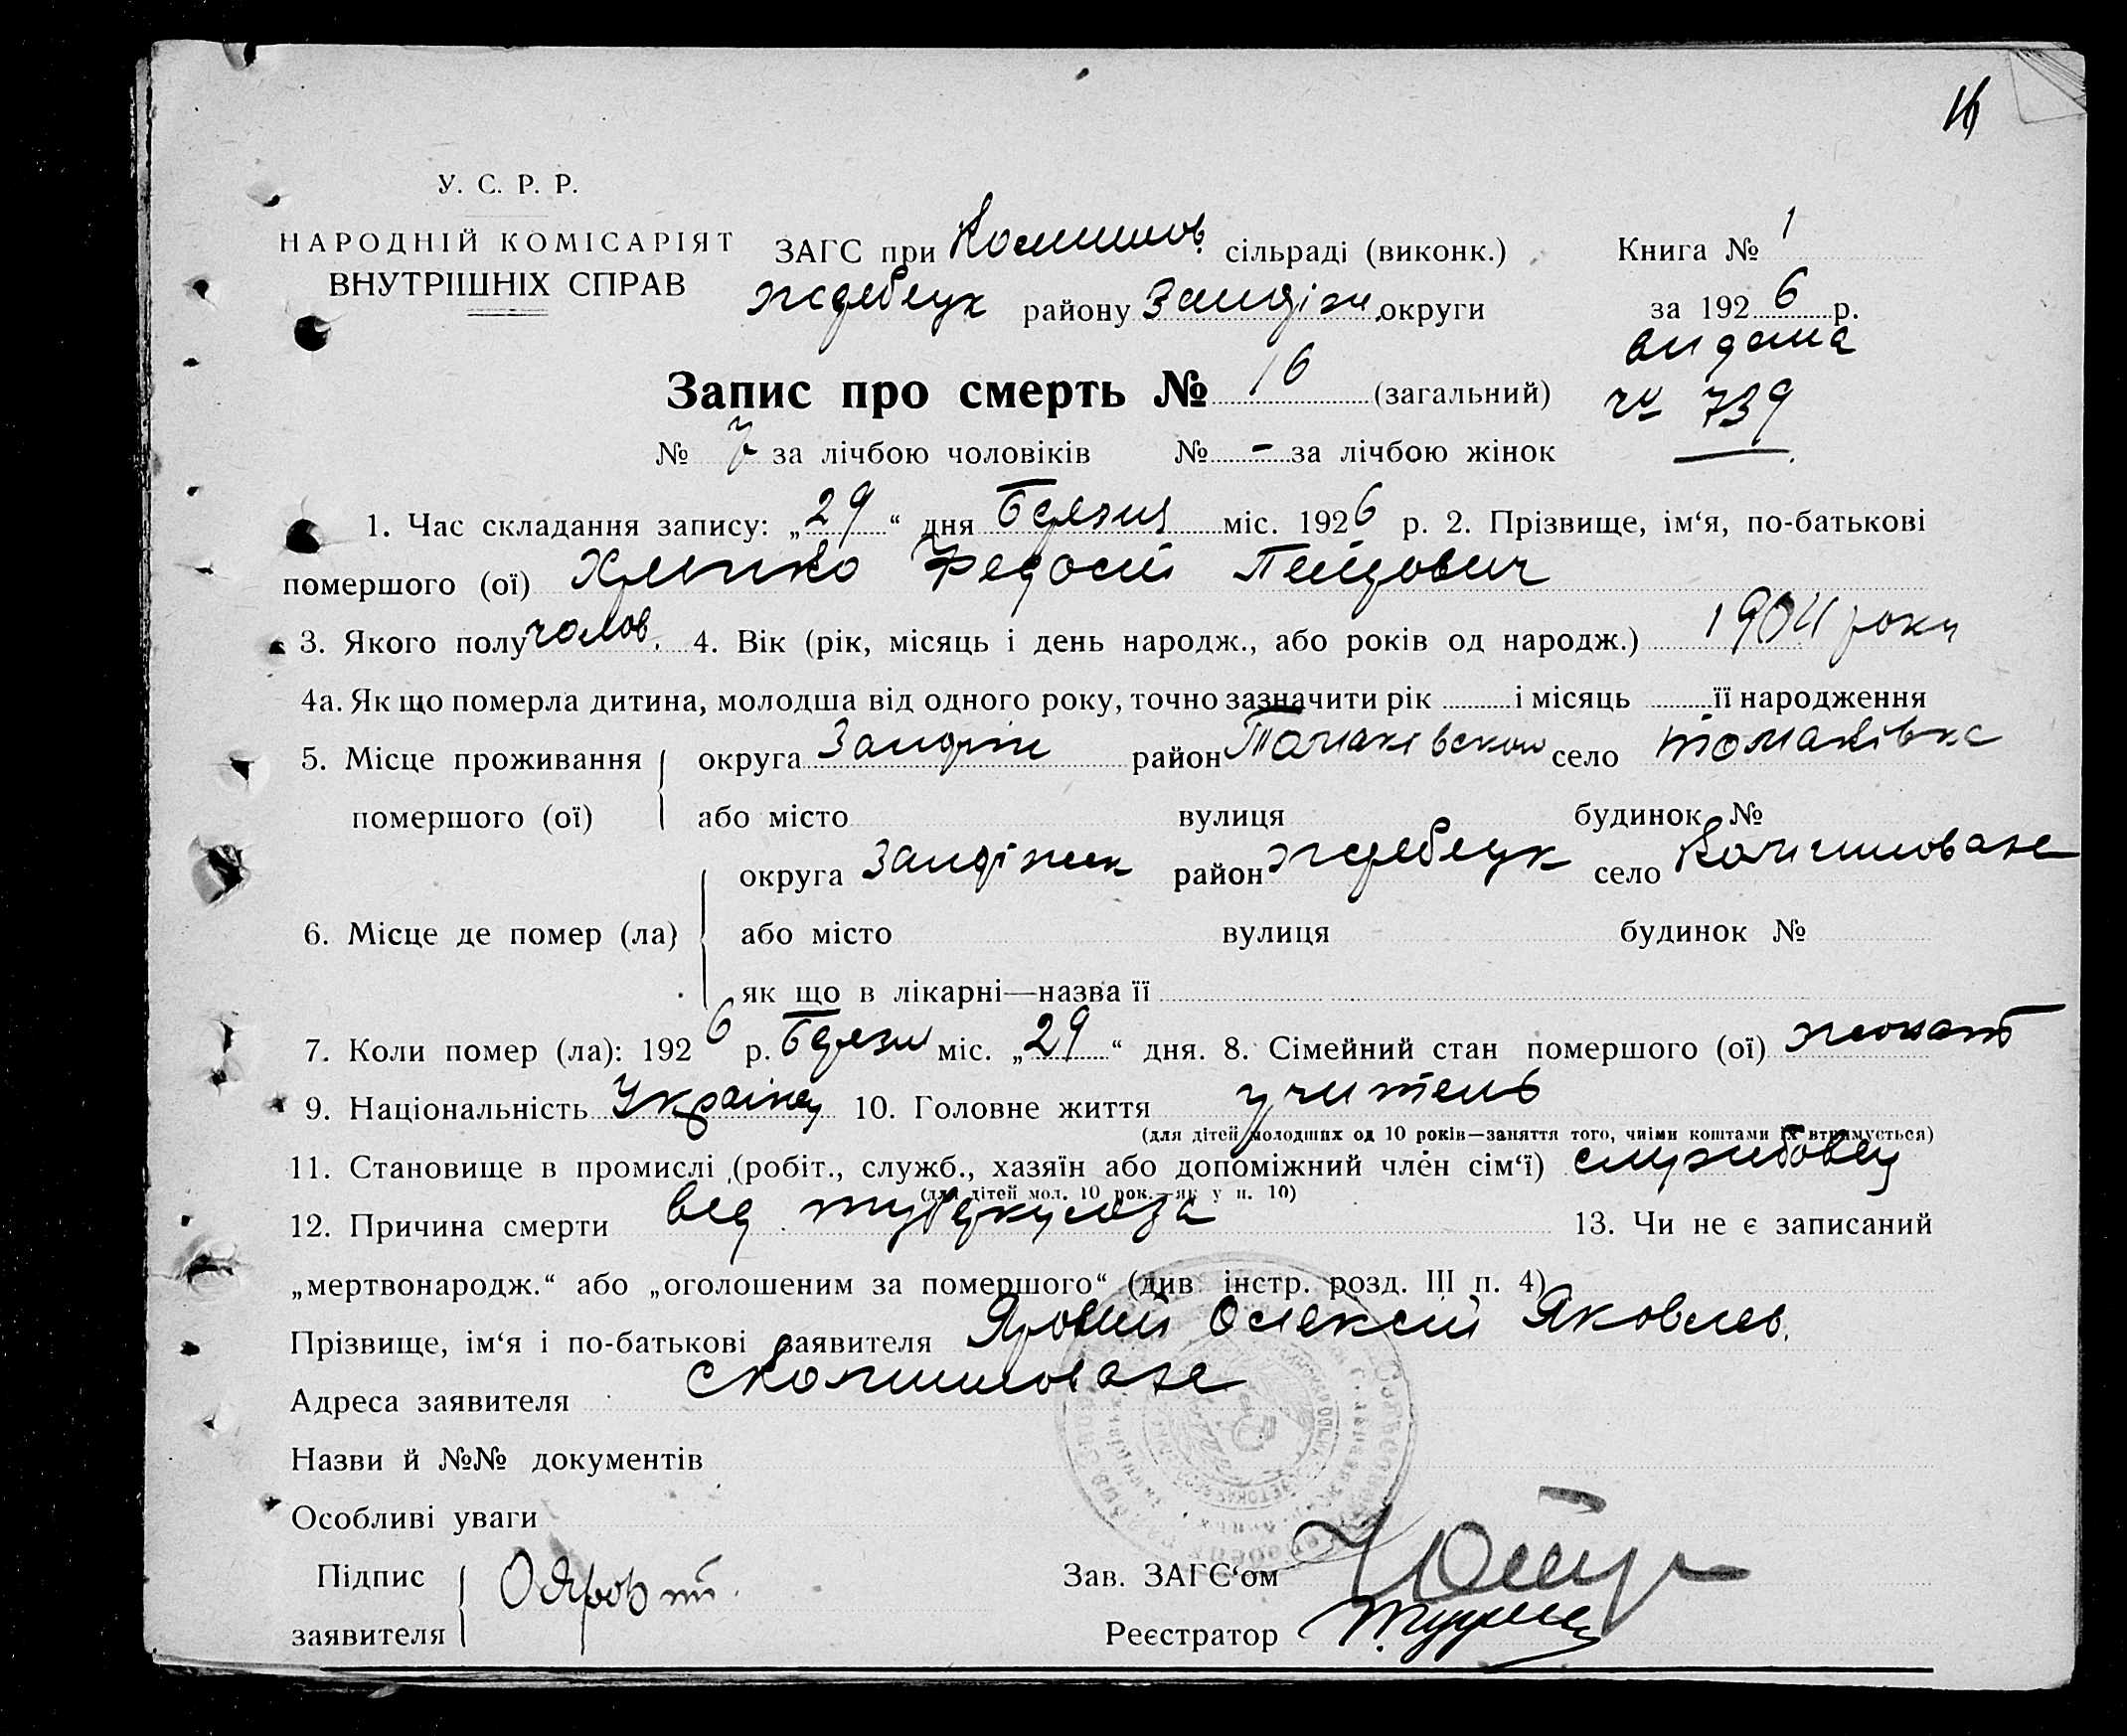 У. С. Р. Р.
НАРОДНІЙ КОМІСАРІЯТ
ВНУТРІШНІХ СПРАВ
ЗАГС при Комишов. сільраді (виконк.)
Жеребецк району Запоріж. округи
Книга № 1
за 1926 р.
видана
чу 739
Запис про смерть № 16 (загальний)
№ 7 за лічбою чоловіків № - за лічбою жінок
1. Час складання запису: „29“ дня Березня міс. 1926 р. 2. Прізвище, ім‘я, по-батькові
помершого (ої) Федосій
3. Якого полу чолов. 4. Вік (рік, місяць і день народж., або років од народж.) 1904 року
4а. Як що померла дитина, молодша від одного року, точно зазначити рік і місяць її народження
5. Місце проживання округа Запоріж район село Томаківка
помершого (ої) або місто вулиця будинок №
округа Запоріжск район Жеребецк село Комишоваха
6. Місце де помер (ла) або місто вулиця будинок №
як що в лікарні—назва її
7. Коли помер (ла): 1926 р. Березн міс. „29“ дня. 8. Сімейний стан помершого (ої) жонат
9. Національність Українец 10. Головне життя учитель
(для дітей молодших од 10 років—заняття того, чиїми коштами їх втримується)
11. Становище в промислі (робіт., служб., хазяїн або допоміжний член сім‘ї) службовец
(для дітей мол. 10 рок.—як у п. 10)
12. Причина смерти вед туберкулоза 13. Чи не є записаний
„мертвонародж.“ або „оголошеним за помершого“ (див інстр. розд. III п. 4)
Прізвище, ім‘я і по-батькові заявителя Яровий Олексій Яковлев.
Адреса заявителя с Комишоваха
Назви й №№ документів
Особливі уваги
Підпис
заявителя
Зав. ЗАГС‘ом
Реєстратор